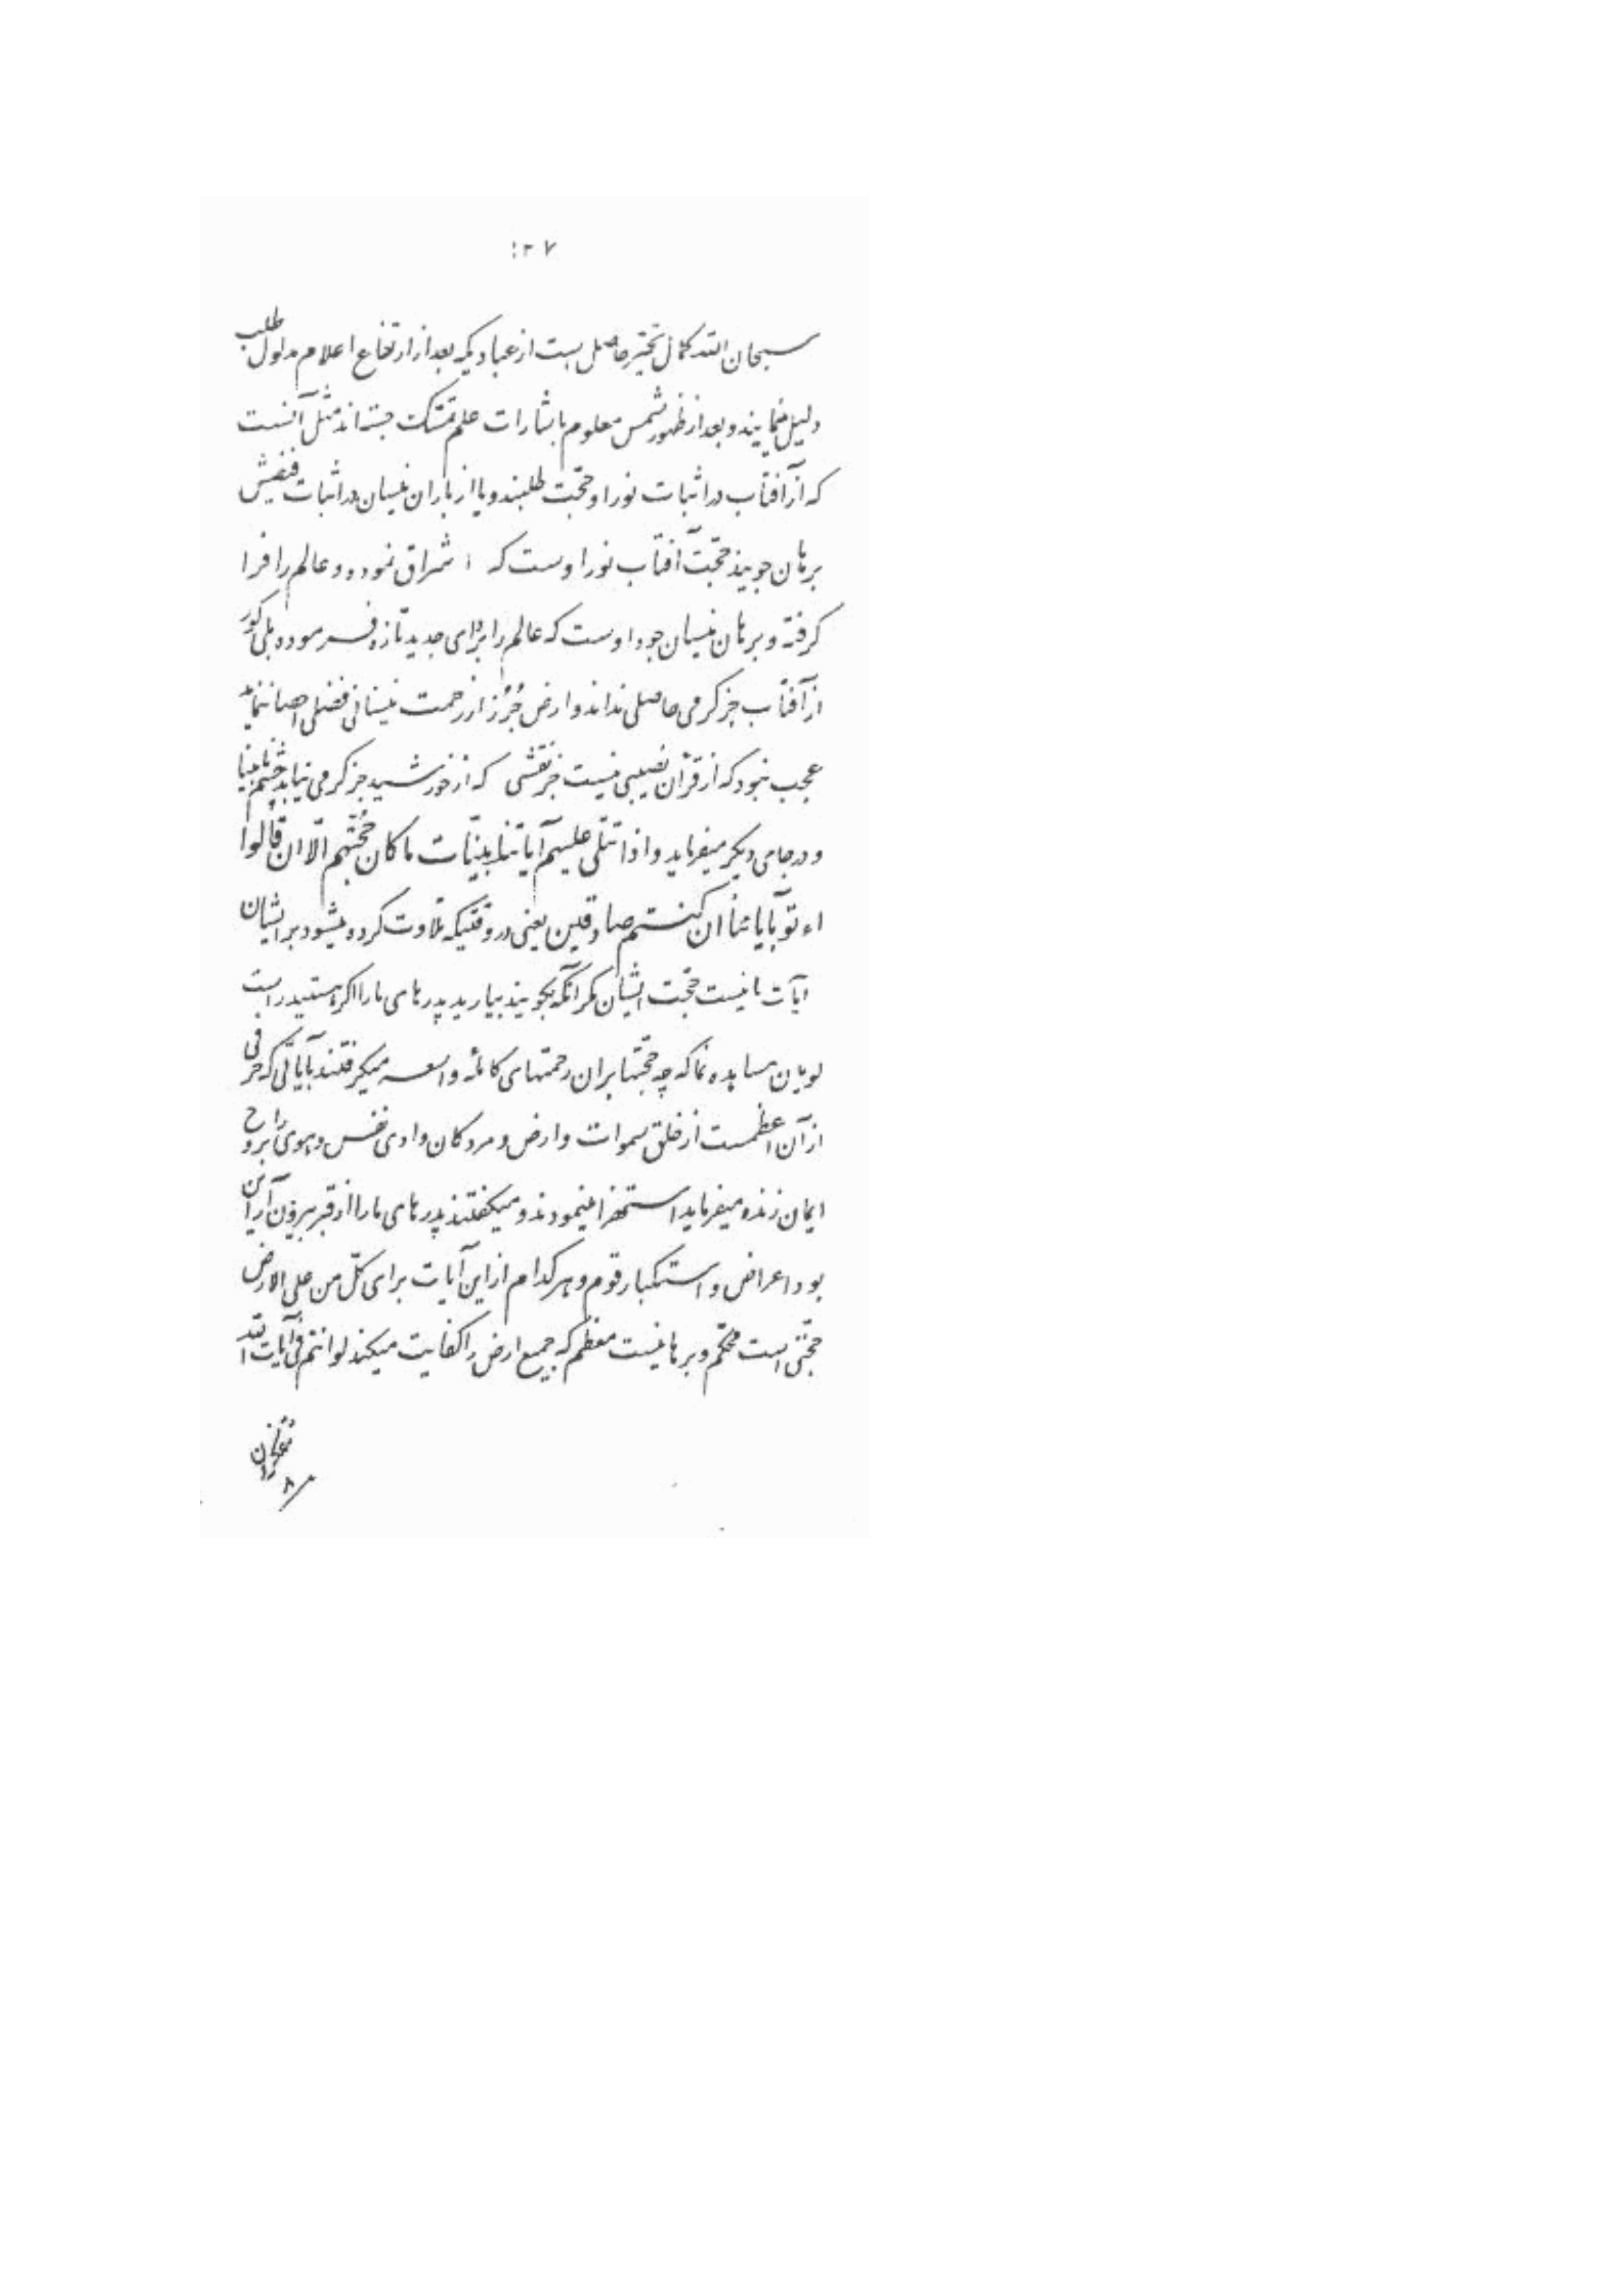 سبحان الله کمال تحیّر حاصل است از عبادیکه بعد از ارتفاع اعلام مدلول طلب
دلیل مینمایند و بعد از ظهور شمس معلوم باشارات علم تمسّک جسته‌اند مثل آنست
که از آفتاب در اثبات نور او حجّت طلبند و یا از باران نیسان در اثبات فیضش
برهان جویند حجّت آفتاب نور اوست که اشراق نموده و عالم را فرا
گرفته و برهان نیسان جود اوست که عالم را بردای جدید تازه فرموده بلی کور
از آفتاب جز گرمی حاصلی نداند و ارض جُرُز از رحمت نیسانی فضلی احصا ننماید
عجب نبود که از قرآن نصیبی نیست جز نقشی که از خورشید جز گرمی نیابد چشم نابینا
و در جای دیگر میفرماید و اذا تتلی علیهم آیاتنا بیّنات ما کان حُجّتهم الّا ان قالوا
اءتو بآبائنا ان کنتم صادقین یعنی در وقتیکه تلاوت کرده میشود بر ایشان
آیات ما نیست حجّت ایشان مگر آنکه بگویند بیارید پدرهای ما را اگر هستید راست
گویان مشاهده نما که چه حجّتها بر ان رحمتهای کامله واسعه میگرفتند بآیاتی که حرفی
از آن اعظمست از خلق سموات و ارض و مردگان وادی نفس و هوی را بروح
ایمان زنده میفرماید استهزا مینمودند و میگفتند پدرهای ما را از قبر بیرون آر این
بود اعراض و استکبار قوم و هر کدام از این آیات برای کلّ من علی الارض
حجّتی است محکم و برهانیست معظم که جمیع ارض را کفایت میکند لو انتم فی آیات الله